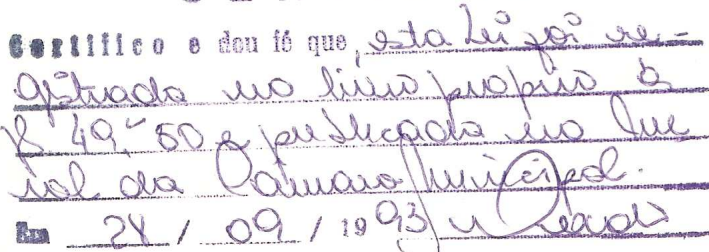 Certifico e dou fé que, esta Lei foi re-
gistrada no livro proprio à
fl 49, 50 e publicada no
da Camara Municipal.
Em 24 / 09 / 1993